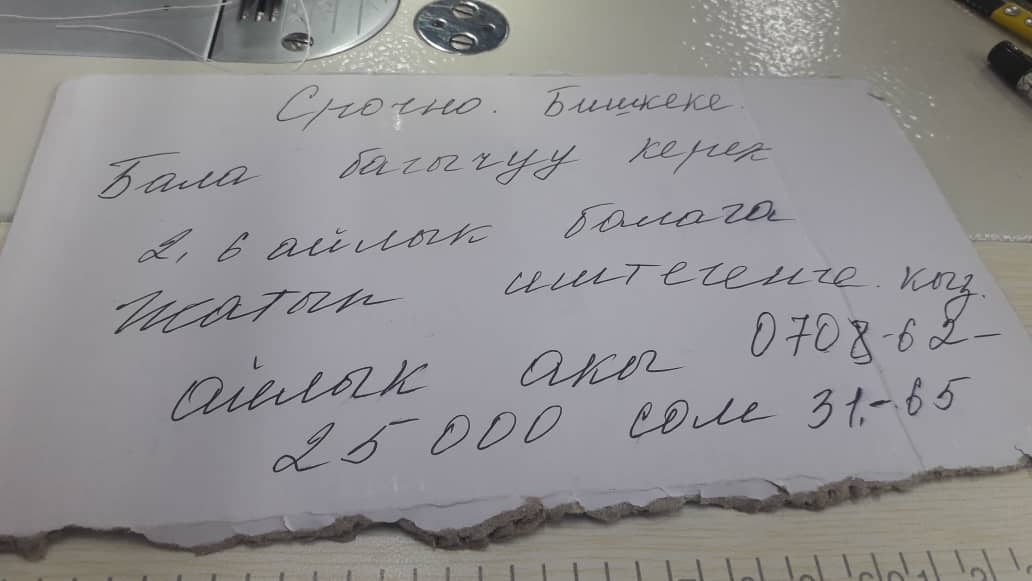 Срочно. Бишкеке.
Бала багычуу керек
2,6 айлык балага
Жатып иштегенге. кыз.
айлык акы 0708-62-
25000 сом 31.-65